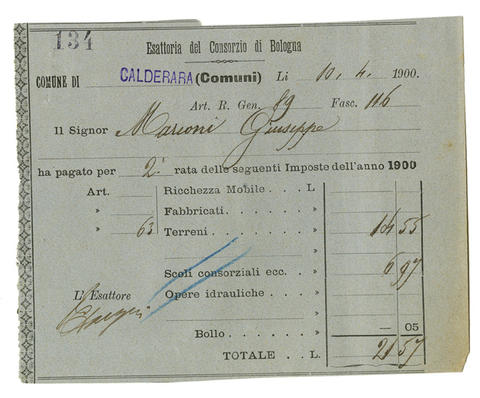 134
Esattoria del Consorzio di Bologna
COMUNE DI CALDERARA (Comuni) Li 10. 4. 1900.
Art. R. Gen. 89 Fasc. 116
Il Signor Marioni Giuseppe
ha pagato per 2ª rata delle seguenti Imposte dell'anno 1900
Art. Ricchezza Mobile . . . L
» Fabbricati. . . . . . . »
» 63 Terreni. . . . . . . . » 14 55
Scoli consorziali ecc. . » 6 97
L'Esattore Opere idrauliche . . . »
Bollo . . » — 05
TOTALE . . L. 21 57